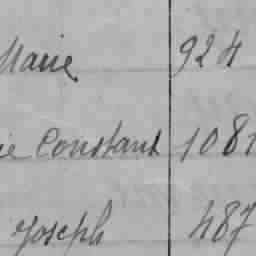 Marie 924
ie Constant 1081
Joseph 487